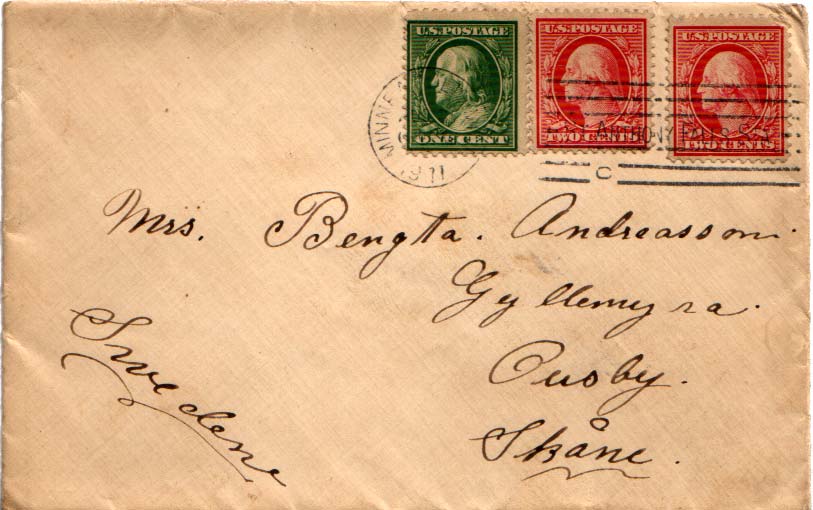 U.S.POSTAGE U.S.POSTAGE U.S.POSTAGE
ONE CENT TWO CENTS TWO CENTS
1911
ANTHONY FALLS
C
Mrs. Bengta. Andreasson.
Gyllemyra.
Ousby.
Skåne.
Swedene